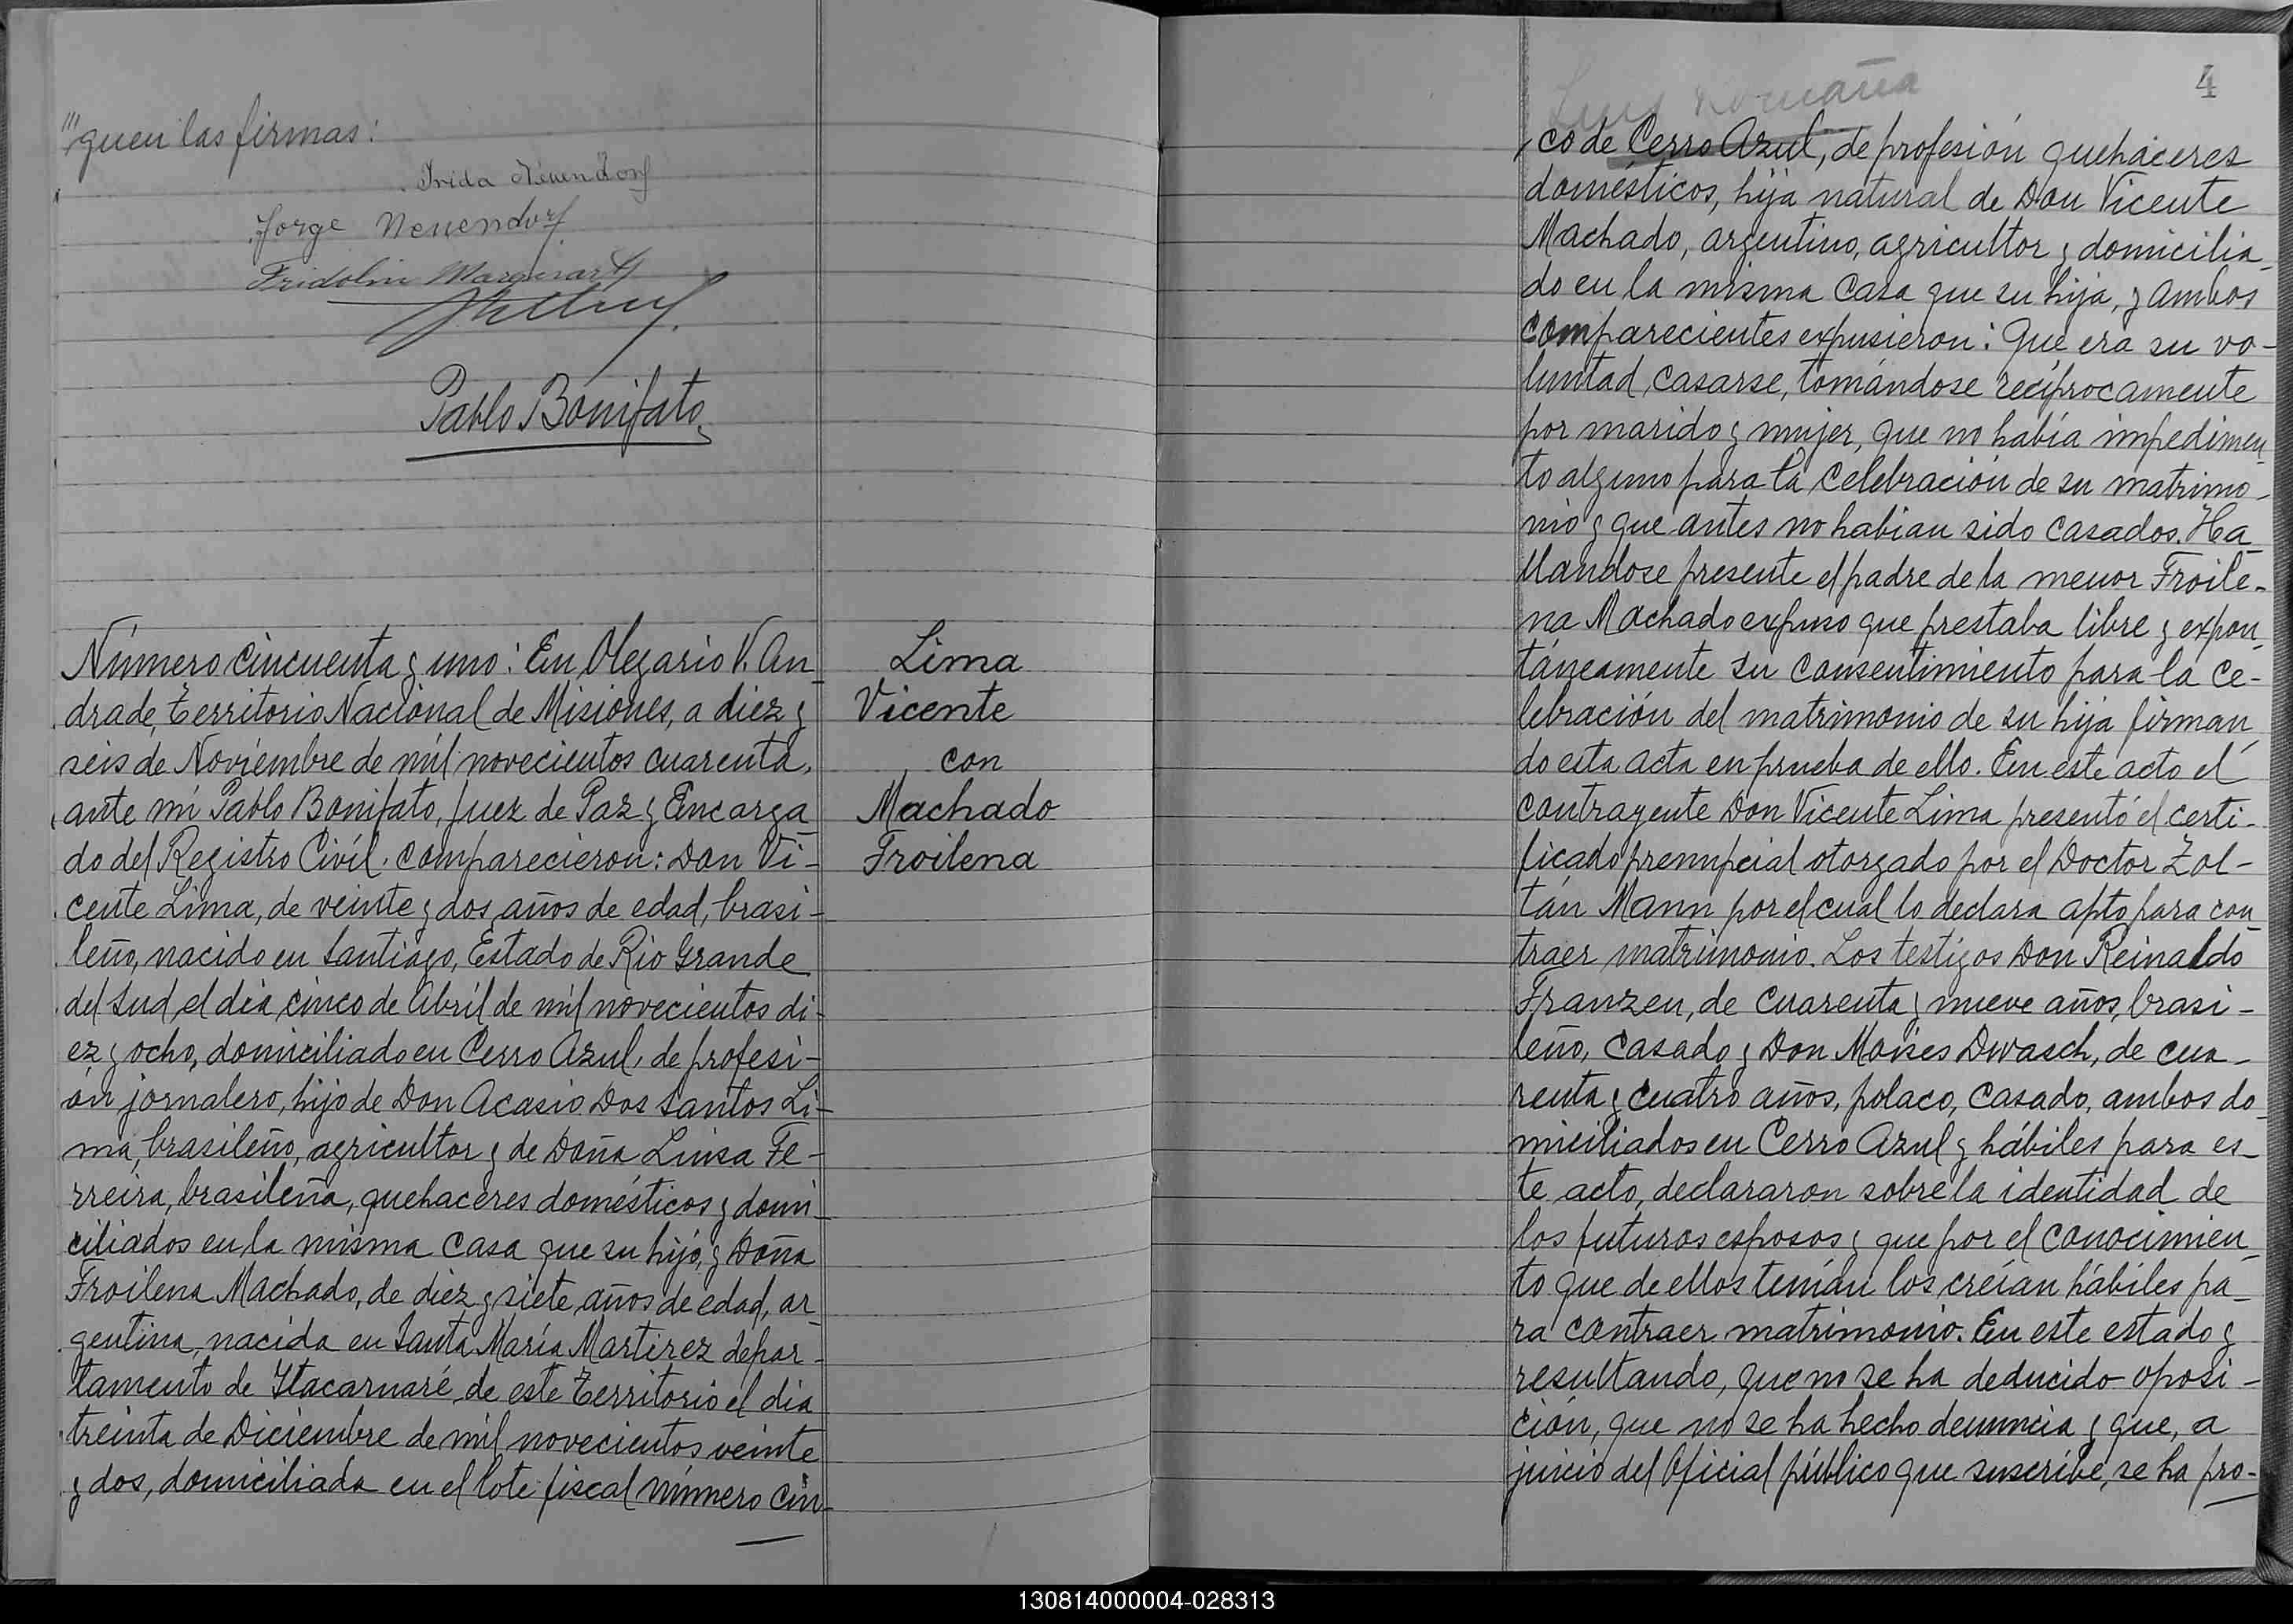 "'guen las firmas:
Frida Neuendorf
Jorge Neuendorf
Fridolin Marquart
Pablo Bonifato
Número cincuenta y uno: En Olegario V. An-
drade, Territorio Nacional de Misiones, a diez y
seis de Noviembre de mil novecientos cuarenta,
ante mí Pablo Bonifato, Juez de Paz y Encarga-
do del Registro Civil. comparecieron: Don Vi-
cente Lima, de veinte y dos años de edad, brasi-
leño, nacido en Santiago, Estado de Rio Grande
del Sud el día cinco de Abril de mil novecientos di-
ez y ocho, domiciliado en Cerro Azul, de profesi-
ón jornalero, hijo de Don Acasio Dos Santos Li-
ma, brasileño, agricultor y de Doña Luisa Fe-
rreira, brasileña, quehaceres domésticos y domi-
ciliados en la misma casa que su hijo, y Doña
Froilena Machado, de diez y siete años de edad, ar-
gentina, nacida en Santa María Martirez depar-
tamento de Itacaruaré de este Territorio el dia
treinta de Diciembre de mil novecientos veinte
y dos, domiciliada en el lote fiscal número cin-
Lima
Vicente
con
Machado
Froilena
4
co de Cerro Azul, de profesión quehaceres
domésticos, hija natural de Don Vicente
Machado, argentino, agricultor y domicilia-
do en la misma casa que su hija, y ambos
comparecientes expusieron: Que era su vo-
luntad casarse, tomándose recíprocamente
por marido y mujer, que no había impedimen-
to alguno para la celebración de su matrimo-
nio y que antes no habian sido casados. Ha-
llandose presente el padre de la menor Froile-
na Machado expuso que prestaba libre y expon-
táneamente su consentimiento para la ce-
lebración del matrimonio de su hija firman-
do esta acta en prueba de ello. En este acto el
contrayente Don Vicente Lima presentó el certi-
ficado prenupcial otorgado por el Doctor Zol-
tán Mann por el cual lo declara apto para con-
traer matrimonio. Los testigos Don Reinaldo
Franzen, de cuarenta y nueve años, brasi-
leño, casado y Don Moises Dwasch, de cua-
renta y cuatro años, polaco, casado, ambos do-
miciliados en Cerro Azul y hábiles para es-
te acto, declararon sobre la identidad de
los futuros esposos y que por el conocimien-
to que de ellos tenían los creían hábiles pa-
ra contraer matrimonio. En este estado y
resultando, que no se ha deducido oposi-
ción, que no se ha hecho denuncia y que, a
juicio del Oficial público que suscribe, se ha pro-
130814000004-028313